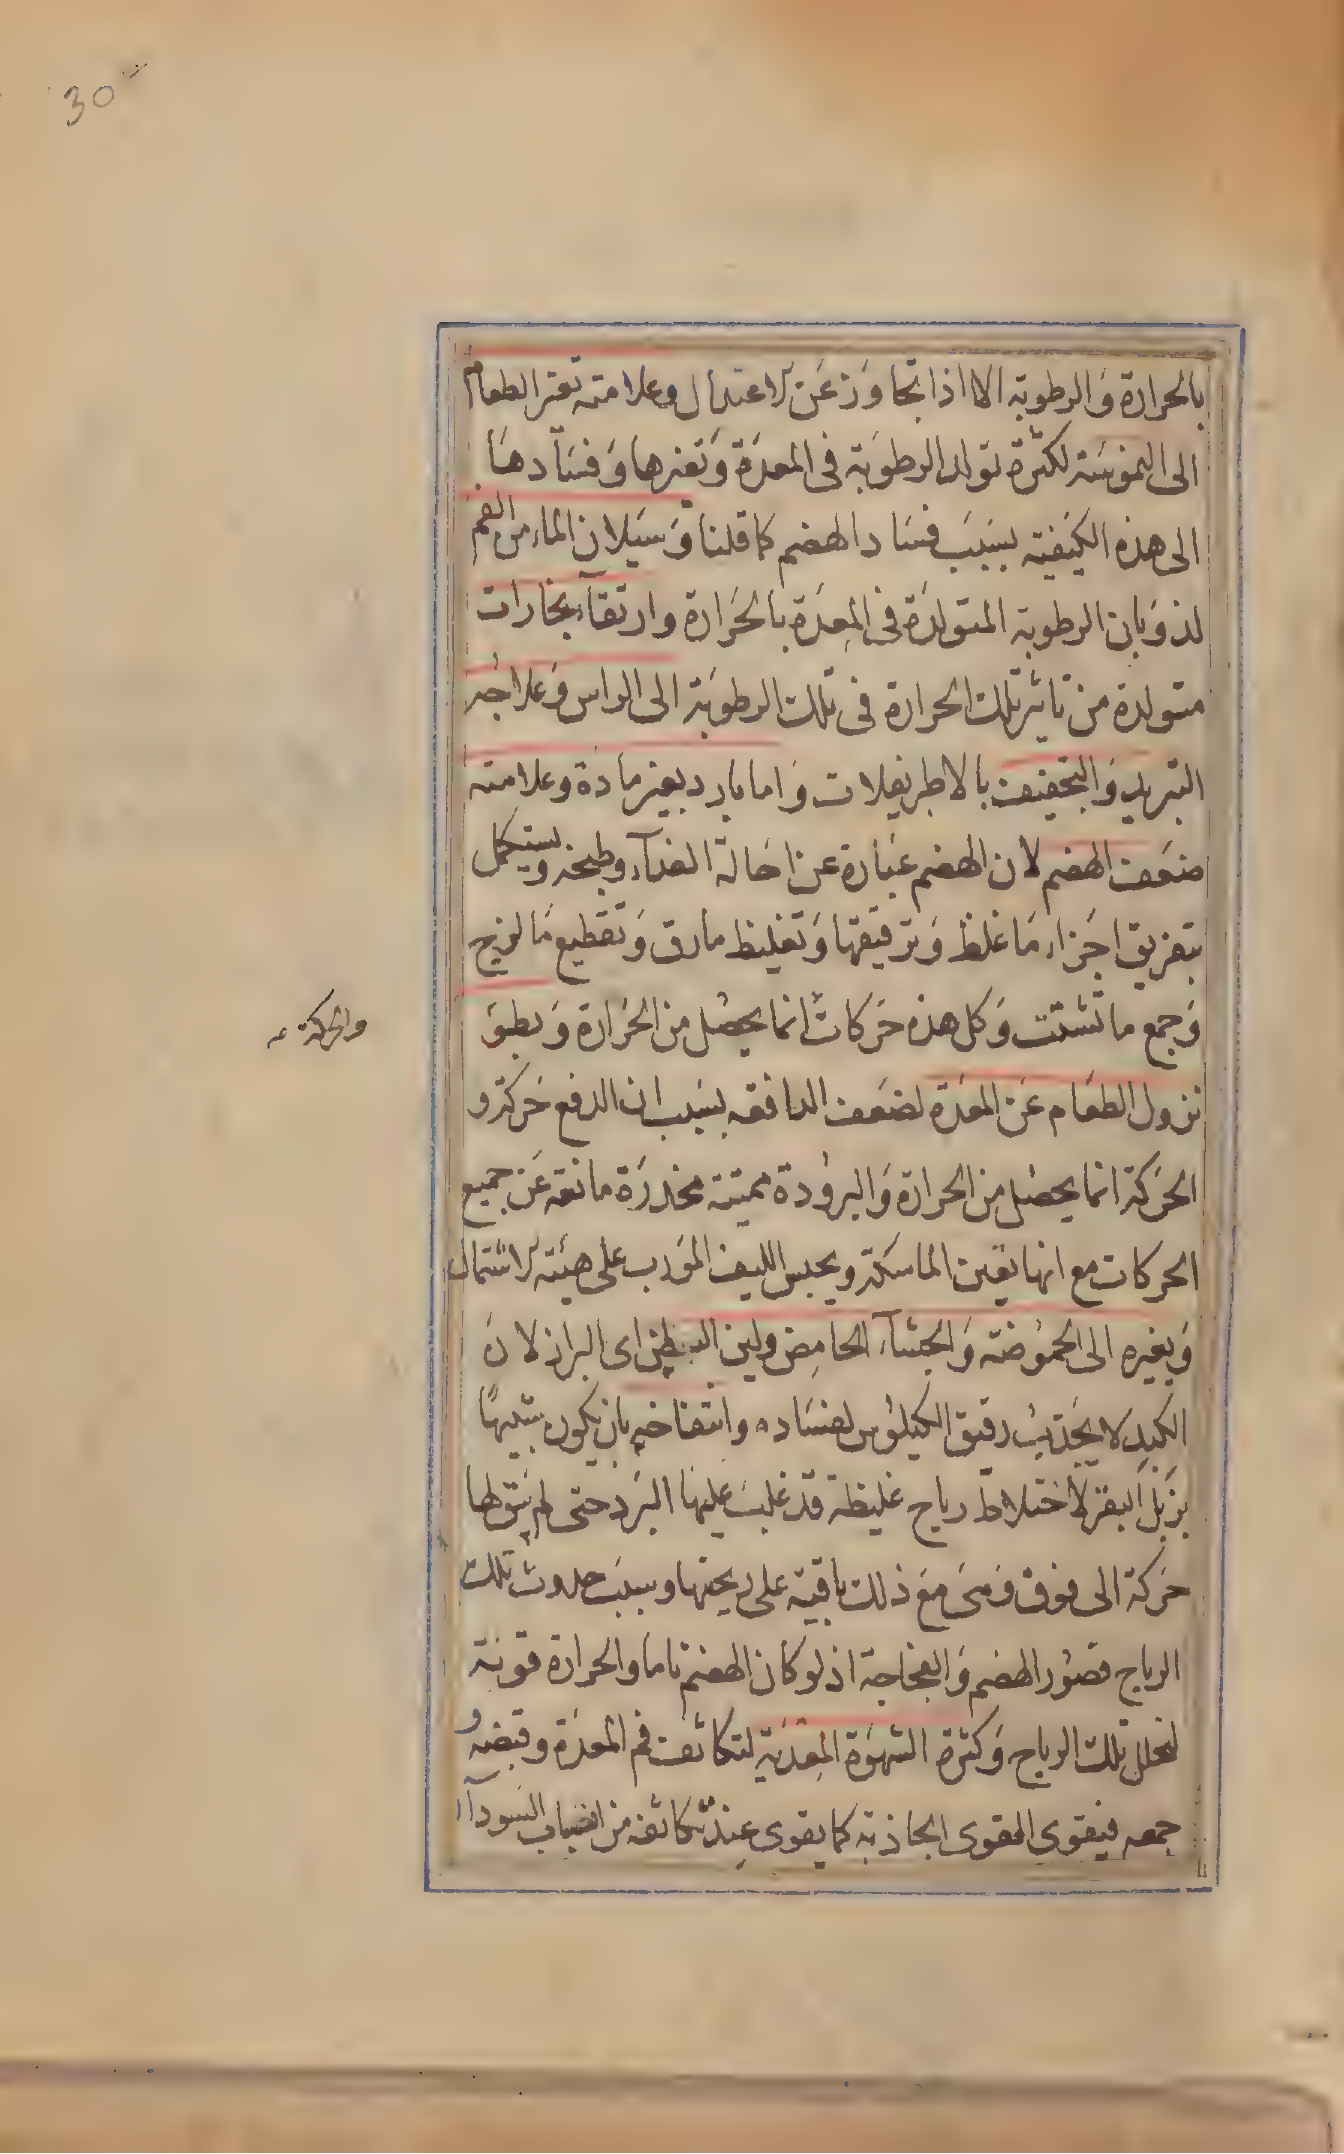 30
بالحرارة والرطوبة الا اذا تجاوز عن الاعتدال وعلامته تغير الطعام
الى الحموضة لكثرة تولد الرطوبة فى المعدة وتغيرها وفسادها
الى هذه الكيفية بسبب فساد الهضم كما قلنا وسيلان الماء من الفم
لذوبان الرطوبة المتولدة فى المعدة بالحرارة وارتقاء بخارات
متولدة من تاثير تلك الحرارة فى تلك الرطوبة الى الراس وعلاجه
التبريد والتجفيف بالاطريفلات واما بارد بغير مادة وعلامته
ضعف الهضم لان الهضم عبارة عن احالة الغذآء وطبخه ويستكمل
بتفريق اجزاء ما غلظ وترقيقها وتغليظ مارق وتقطيع ما لزج
وجمع ما تشتت وكل هذه حركات انما يحصل من الحرارة وبطؤ
نزول الطعام عن المعدة لضعف الدافعه بسبب ان الدفع حركة و
الحركة انما يحصل من الحرارة والبرودة مميتة مخدرة مانعة عن جميع
الحركات مع انها تعين الماسكة ويحبس الليف المورب على هيئة الاشتمال
وتغيره الى الحموضة والجشآء الحامض ولين البطن اى البراز لان
الكبد لا يجذب رقيق الكيلوس لفساده وانتفاخه بان يكون شبيها
بزبل البقر لاختلاط رياح غليظة قد غلب عليها البرد حتى لم يبق لها
حركة الى فوق وهى مع ذلك باقية على ريحيتها وسبب حدوث تلك
الرياح قصور الهضم والفجاجة اذ لو كان الهضم تاما والحرارة قوية
لتحلل تلك الرياح وكثرة الشهوة المعدية لتكاثف فم المعدة وقبضه و
جمعه فيقوى القوى الجاذبة كما يقوى عند تكاثفه من انصباب السودآء
والحركة